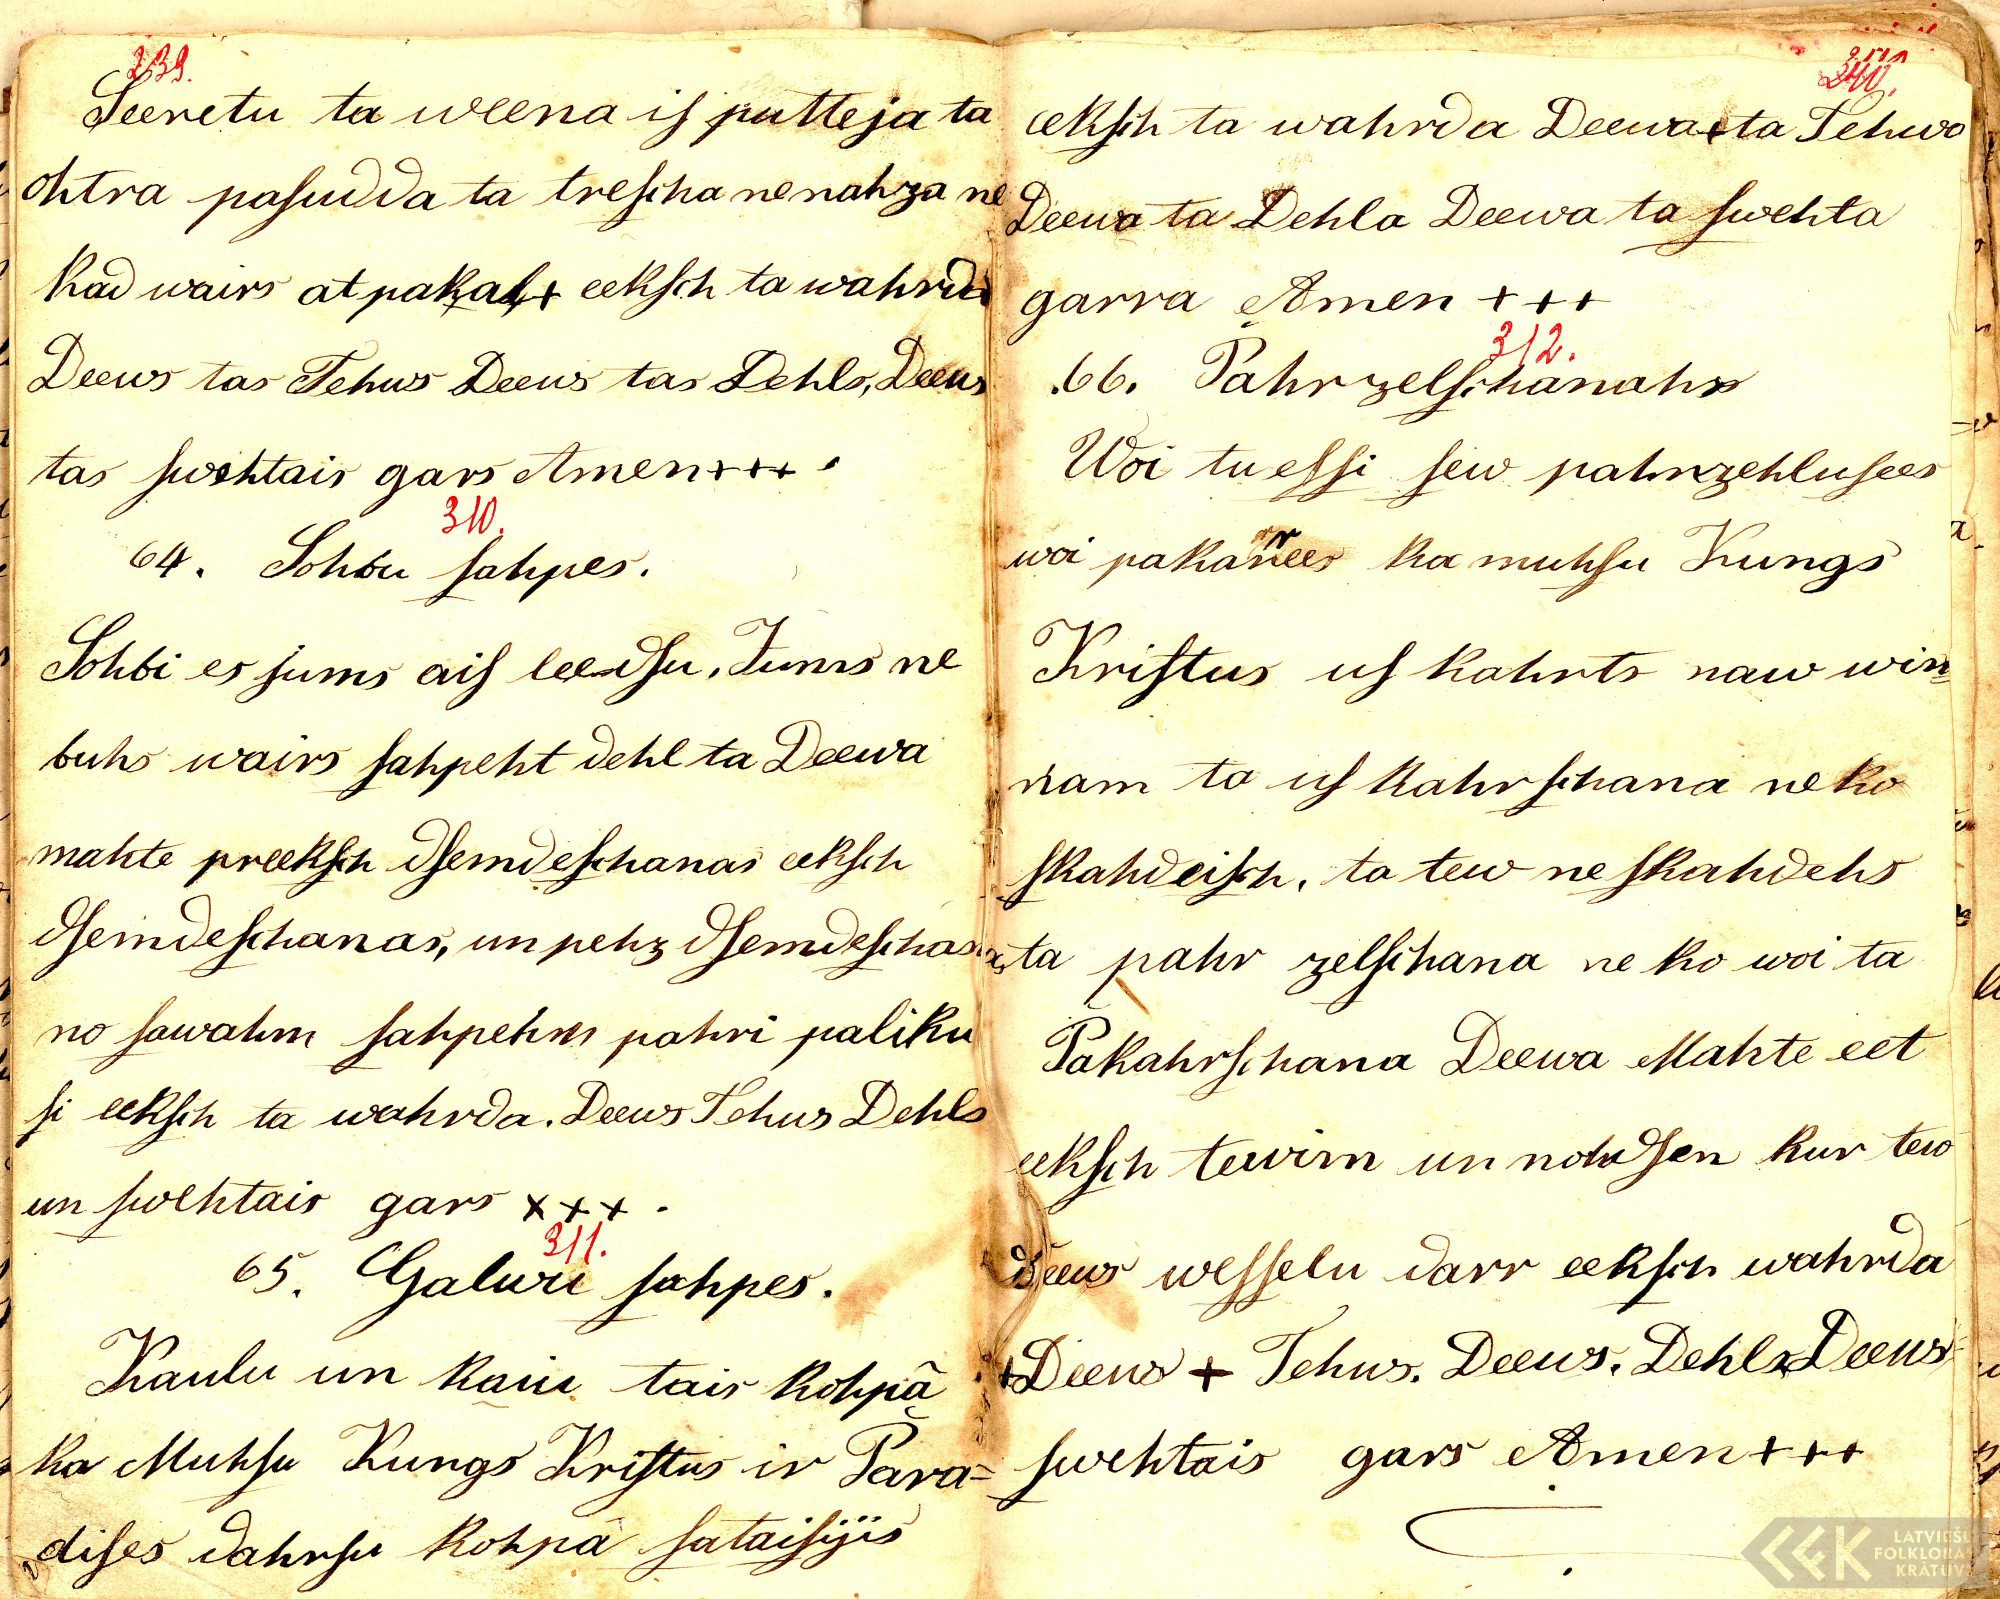 239.
Seeretu ta weena is putteja ta
ohtra pasudda ta trescha ne nahza ne
kad wairs atpakaļ + eeksch ta wahrda
Deews tas Tehws Deews tas Dehls, Deews
tas swehtais gars Amen +++.
310.
64. Sohbu sahpes.
Sohbi es jums ais leedsu. Jums ne
buhs wairs sahpeht dehl ta Deewa
mahte preeksch dsemdeschanas eeksch
dsemdeschanas, un pehz dsemdeschas
no sawahm sahpehm pahri paliku
si eeksch ta wahrda. Deews Tehws Dehls
un swehtais gars +++.
311.
65. Galwu sahpes.
Kaulu un kauu tais kohpā
ka Muhsu Kungs Kristus ir Para=
dises dahrsu kohpā sataisijis
240.
eeksch ta wahrda Deewa + ta Tehwa
Deewa ta Dehla Deewa ta swehta
garra Amen +++
312.
66. Pahrzelschanahs
Woi tu essi sew pahrzehlusees
woi pakarrees ka muhsu Kungs
Kristus us kahrts naw win=
nam ta us kahrschana neko
skahdeisch, ta tew ne skahdehs
ta pahr zelschana ne ko woi ta
Pakahrschana Deewa Mahte eet
eeksch tewim un nohdsen kur tew
Deews wesselu darr eeksch wahrda
+ Deews + Tehws. Deews. Dehls Deews
swehtais gars Amen +++
LATVIEŠU
FOLKLORAS
KRĀTUVE